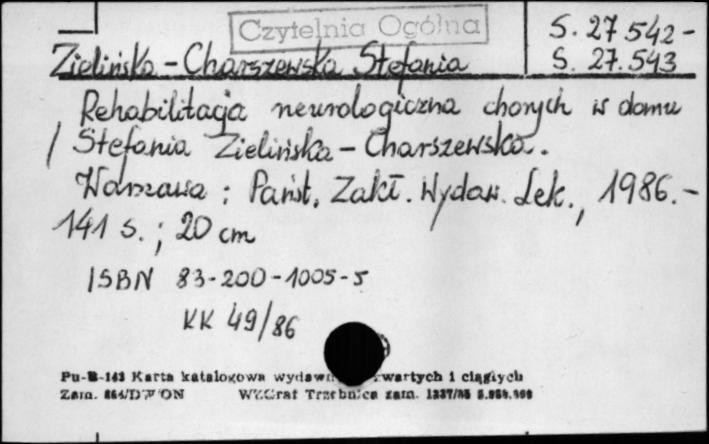 Czytelnia Ogólna
S. 27 542-
S. 27.543
Zielińska - Charszewska Stefania
Rehabilitacja neurologiczna chorych w domu
/ Stefania Zielińska - Charszewska.
Warszawa : Państ. Zakł. Wydaw. Lek., 1986.-
141 s. ; 20 cm
ISBN 83-200-1005-5
KK 49/86
Pu-B-143 Karta katalogowa wydawn zwartych i ciągłych
Zam. WZGraf Trzebnica zam.